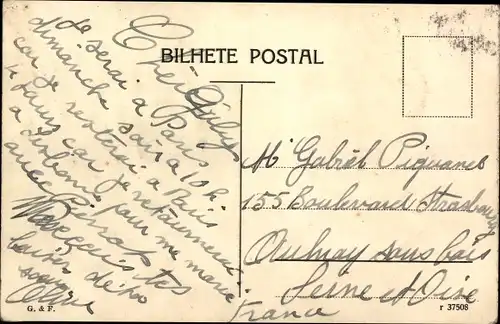 BILHETE POSTAL
Cher Guluy
Je serai a Paris
dimanche soir a 10 h.
car je resterai a Paris
4 jours car je retournerai
a Lisbonne pour me marie
avec
baisers de ta
soeur
Mr Gabriel Piquanet
155 Boulevard Strasbourg
Aulnay sous bois
Seine et Oise
France
G. & F.
r 37508